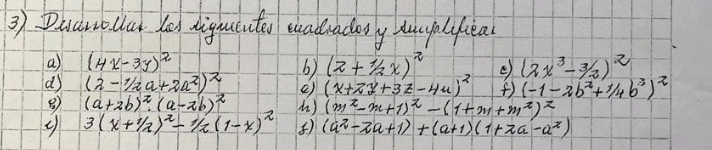 3) Desarrollar los siguientes cuadrados y simplificar
a) (4x-3y)² b) (2+1/2x)² c) (2x³-3/2)²
d) (2-1/2a+2a²)² e) (x+2y+3z-4u)² f) (-1-2b²+1/4b³)²
g) (a+2b)².(a-2b)² h) (m²-m+1)²-(1+m+m²)²
i) 3(x+1/2)²-1/2(1-x)² j) (a²-2a+1)+(a+1)(1+2a-a²)